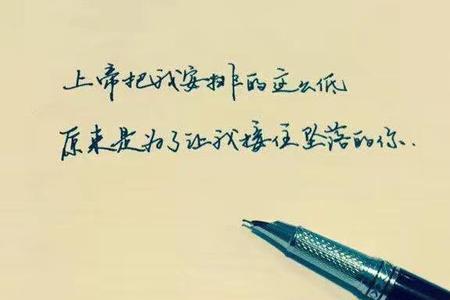 上帝把我安排的这么低
原来是为了让我接住坠落的你.